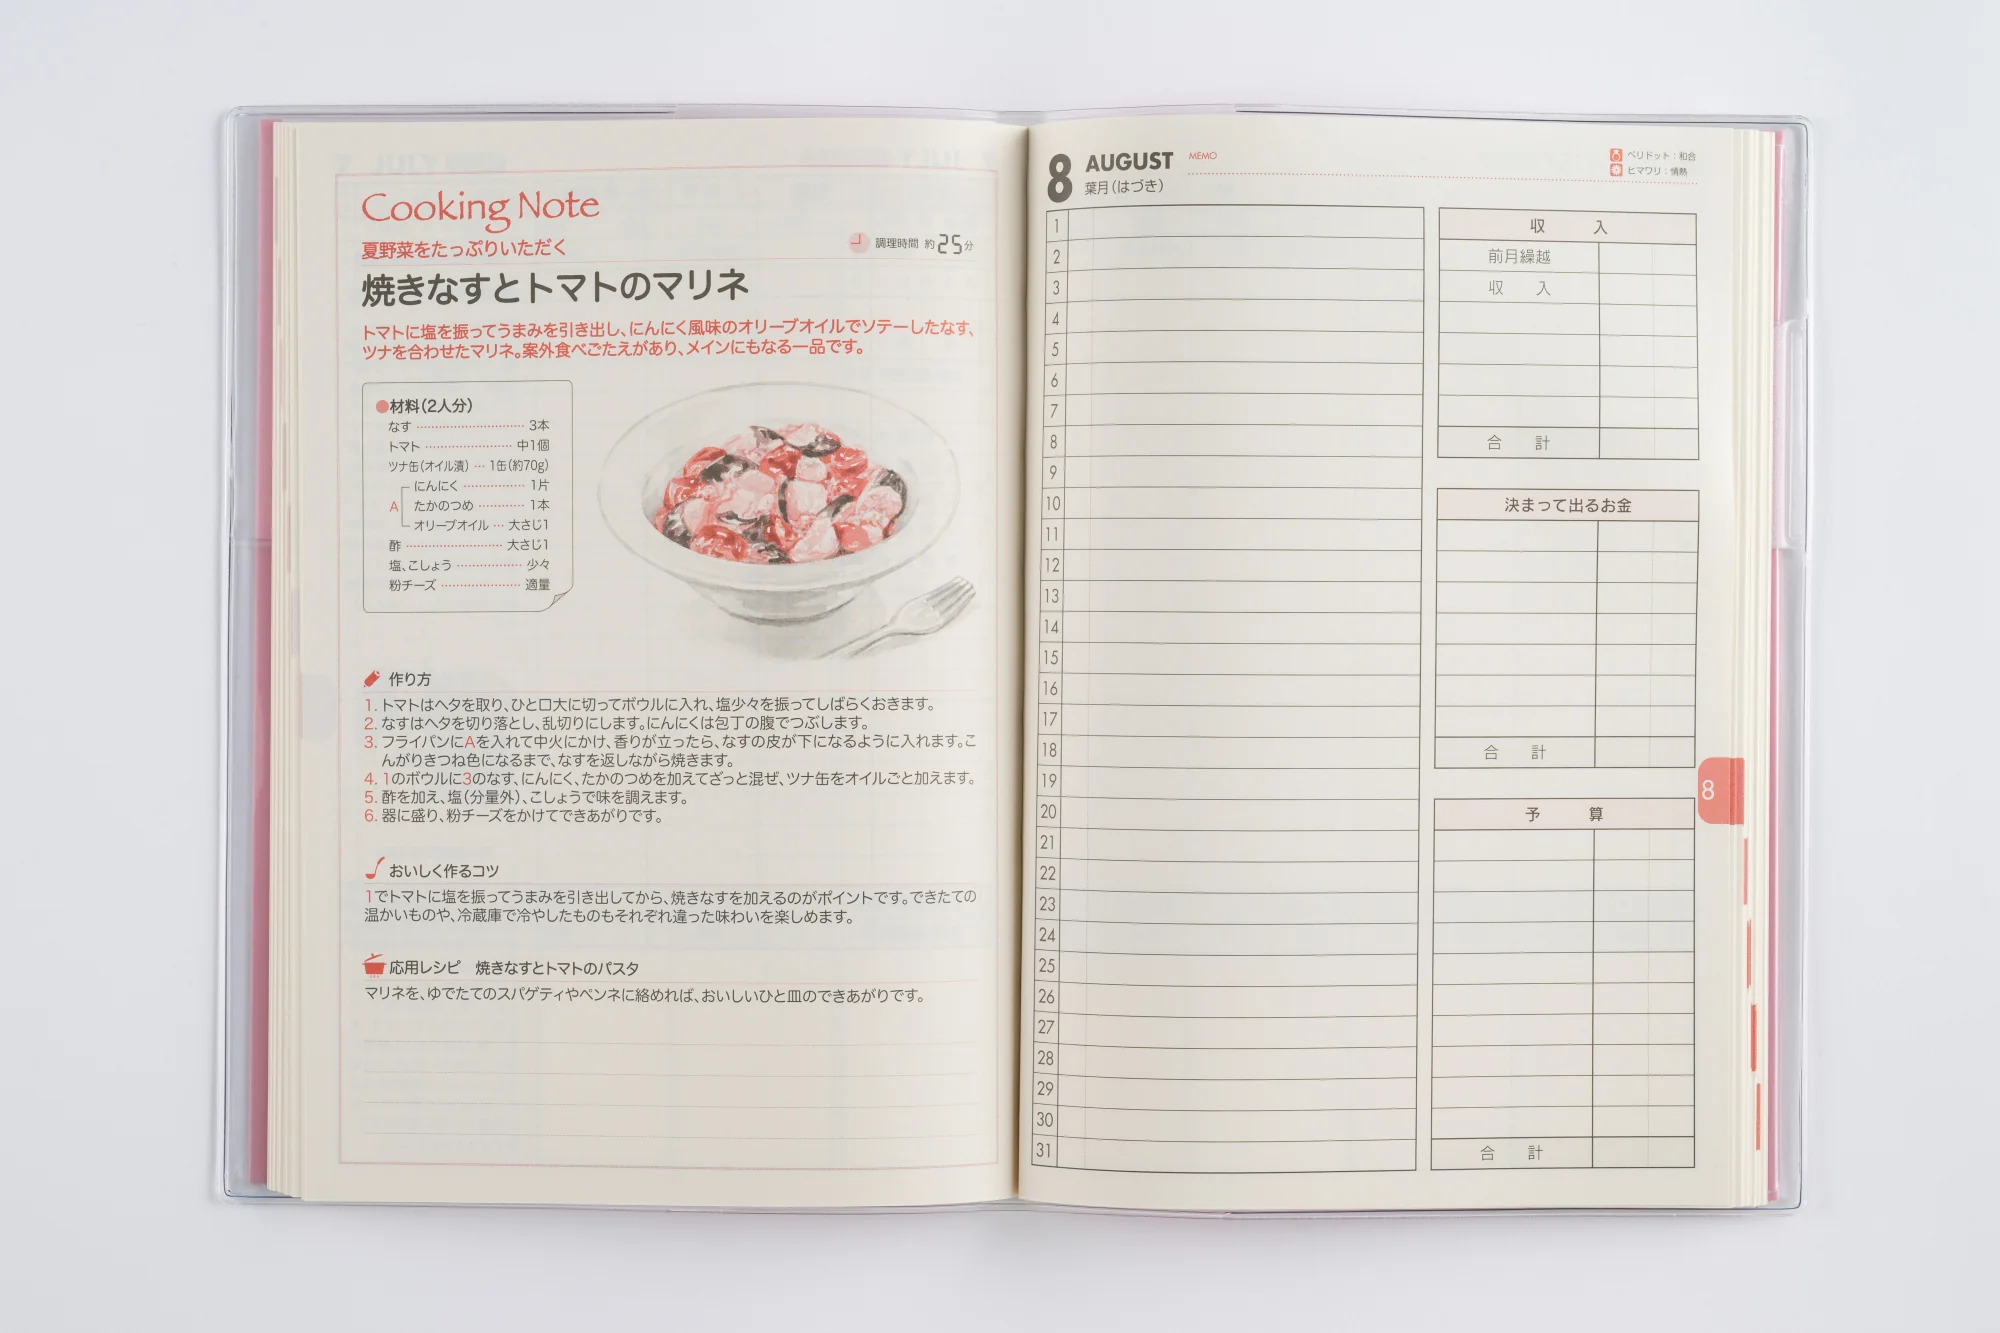 Cooking Note
夏野菜をたっぷりいただく
調理時間 約25分
焼きなすとトマトのマリネ
トマトに塩を振ってうまみを引き出し、にんにく風味のオリーブオイルでソテーしたなす、
ツナを合わせたマリネ。案外食べごたえがあり、メインにもなる一品です。
●材料(2人分)
なす 3本
トマト 中1個
ツナ缶(オイル漬) … 1缶(約70g)
にんにく 1片
A たかのつめ 1本
オリーブオイル … 大さじ1
酢 大さじ1
塩、こしょう 少々
粉チーズ 適量
作り方
1. トマトはヘタを取り、ひと口大に切ってボウルに入れ、塩少々を振ってしばらくおきます。
2. なすはヘタを切り落とし、乱切りにします。にんにくは包丁の腹でつぶします。
3. フライパンにAを入れて中火にかけ、香りが立ったら、なすの皮が下になるように入れます。こ
んがりきつね色になるまで、なすを返しながら焼きます。
4. 1のボウルに3のなす、にんにく、たかのつめを加えてざっと混ぜ、ツナ缶をオイルごと加えます。
5. 酢を加え、塩(分量外)、こしょうで味を調えます。
6. 器に盛り、粉チーズをかけてできあがりです。
おいしく作るコツ
1でトマトに塩を振ってうまみを引き出してから、焼きなすを加えるのがポイントです。できたての
温かいものや、冷蔵庫で冷やしたものもそれぞれ違った味わいを楽しめます。
応用レシピ 焼きなすとトマトのパスタ
マリネを、ゆでたてのスパゲティやペンネに絡めれば、おいしいひと皿のできあがりです。
8 AUGUST MEMO
葉月(はづき)
ペリドット:和合
ヒマワリ:情熱
1
2
3
4
5
6
7
8
9
10
11
12
13
14
15
16
17
18
19
20
21
22
23
24
25
26
27
28
29
30
31
収 入
前月繰越
収 入
合 計
決まって出るお金
合 計
予 算
合 計
8